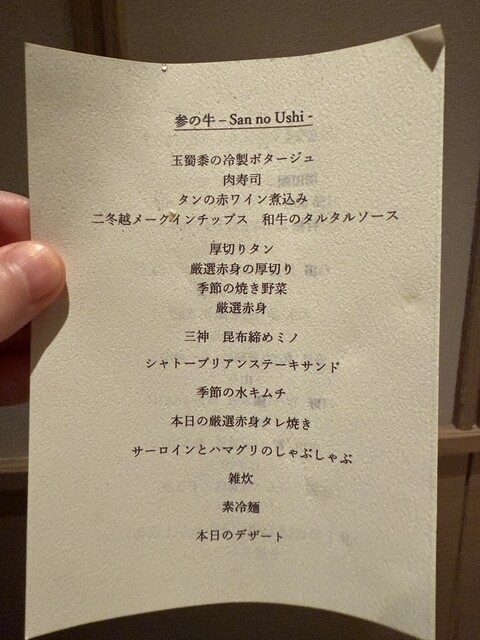 参の牛 – San no Ushi -
玉蜀黍の冷製ポタージュ
肉寿司
タンの赤ワイン煮込み
二冬越メークインチップス　和牛のタルタルソース
厚切りタン
厳選赤身の厚切り
季節の焼き野菜
厳選赤身
三神　昆布締めミノ
シャトーブリアンステーキサンド
季節の水キムチ
本日の厳選赤身タレ焼き
サーロインとハマグリのしゃぶしゃぶ
雑炊
素冷麺
本日のデザート